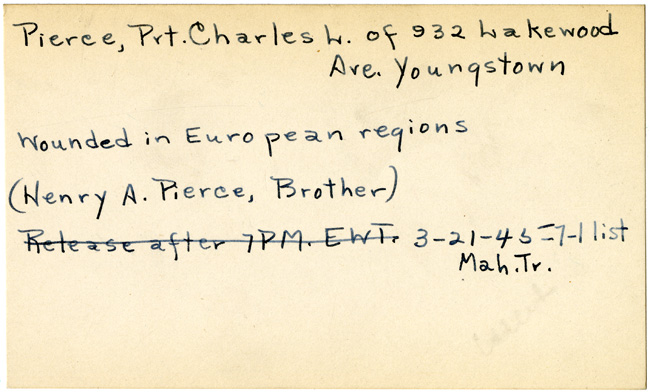 Pierce, Prt. Charles L. of 932 Lakewood
Ave. Youngstown
Wounded in European regions
(Henry A. Pierce, Brother)
Release after 7PM. EWT. 3-21-45=7-1 list
Mah. Tr.